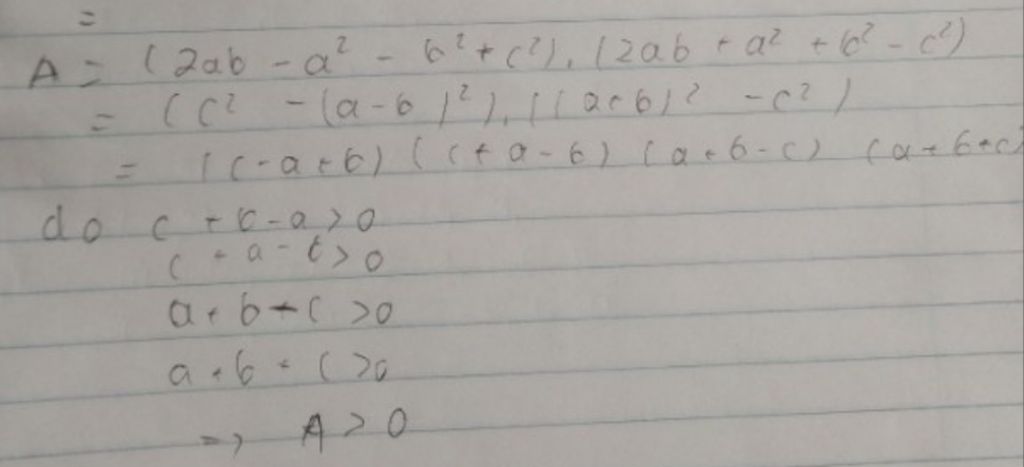 =
A = (2ab - a² - b² + c²).(2ab + a² + b² - c²)
= (c² - (a - b)²).((a+b)² - c²)
= (c - a + b) (c + a - b) (a + b - c) (a + b + c)
do c + b - a > 0
c + a - b > 0
a + b - c > 0
a + b + c > 0
=> A > 0